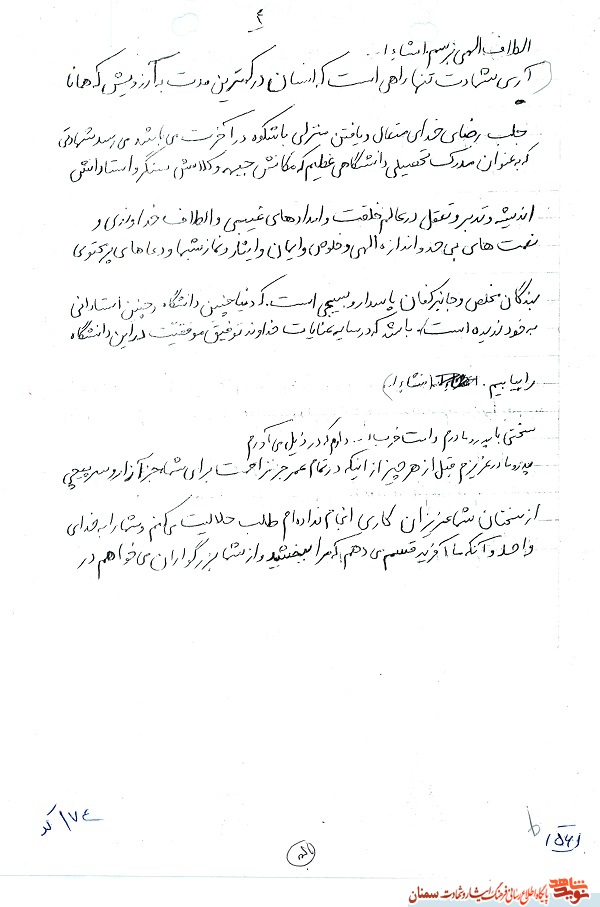 ۴
الطاف الهی برسم. انشاءا...
آری شهادت تنها راهی است که انسان در کمترین مدت به آرزویش که همانا
جلب رضای خدای متعال و یافتن منزلی باشکوه در آخرت می باشد می رسد شهادتی
که بعنوان مدرک تحصیلی دانشگاهی عظیم که مکانش جبهه و کلاسش سنگر و استادانش
اندیشه و تدبر و تعقل در عالم خلقت و امدادهای غیبی و الطاف خداوندی و
نعمت های بی حد و اندازه الهی و خلوص و ایمان و ایثار و نماز شبها و دعاهای پرمحتوی
بندگان مخلص و جانبرکفان پاسدار و بسیجی است. که دنیا چنین دانشگاه و چنین استادانی
به خود ندیده است. باشد که در سایه عنایات خداوند توفیق موفقیت در این دانشگاه
را بیابیم. انشاءا...
سخنی با پدر و مادرم و امت حزب ا... دارم که در ذیل می آورم
پدر و مادر عزیزم قبل از هر چیز از اینکه در تمام عمر جز ناراحت برای شما و جز آزار و سرپیچی
از سخنان شما عزیزان کاری انجام نداده ام طلب حلالیت می کنم و شما را به خدای
واحد و آنکه ما آفرید قسم می دهم که مرا ببخشید و از شما بزرگواران می خواهم در
کد ۱۷۴
شاهد
نوید
پایگاه اطلاع رسانی فرهنگ ایثار و شهادت سمنان